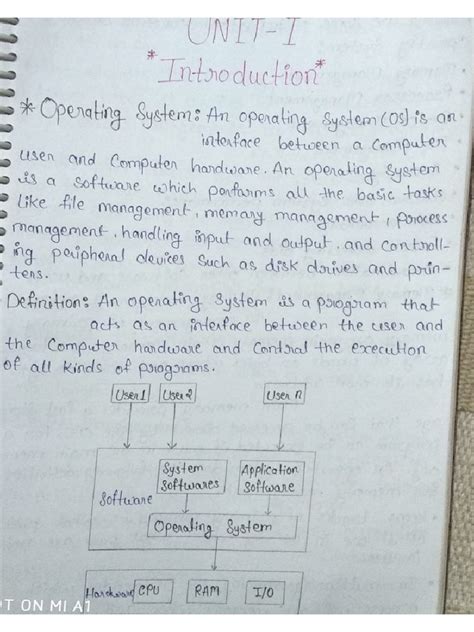 UNIT-I
*Introduction*
* Operating System: An operating System (OS) is an
interface between a Computer
User and Computer hardware. An operating System
is a Software which performs all the basic tasks
like file management, memory management, process
management, handling input and output, and controll-
ing peripheral devices such as disk drives and prin-
ters.
Definition: An operating System is a program that
acts as an interface between the user and
the Computer hardware and Control the execution
of all kinds of programs.
User 1 User 2 User n
System Application
Softwares Software
Software
Operating System
Hardware CPU RAM I/O
T ON MI A1